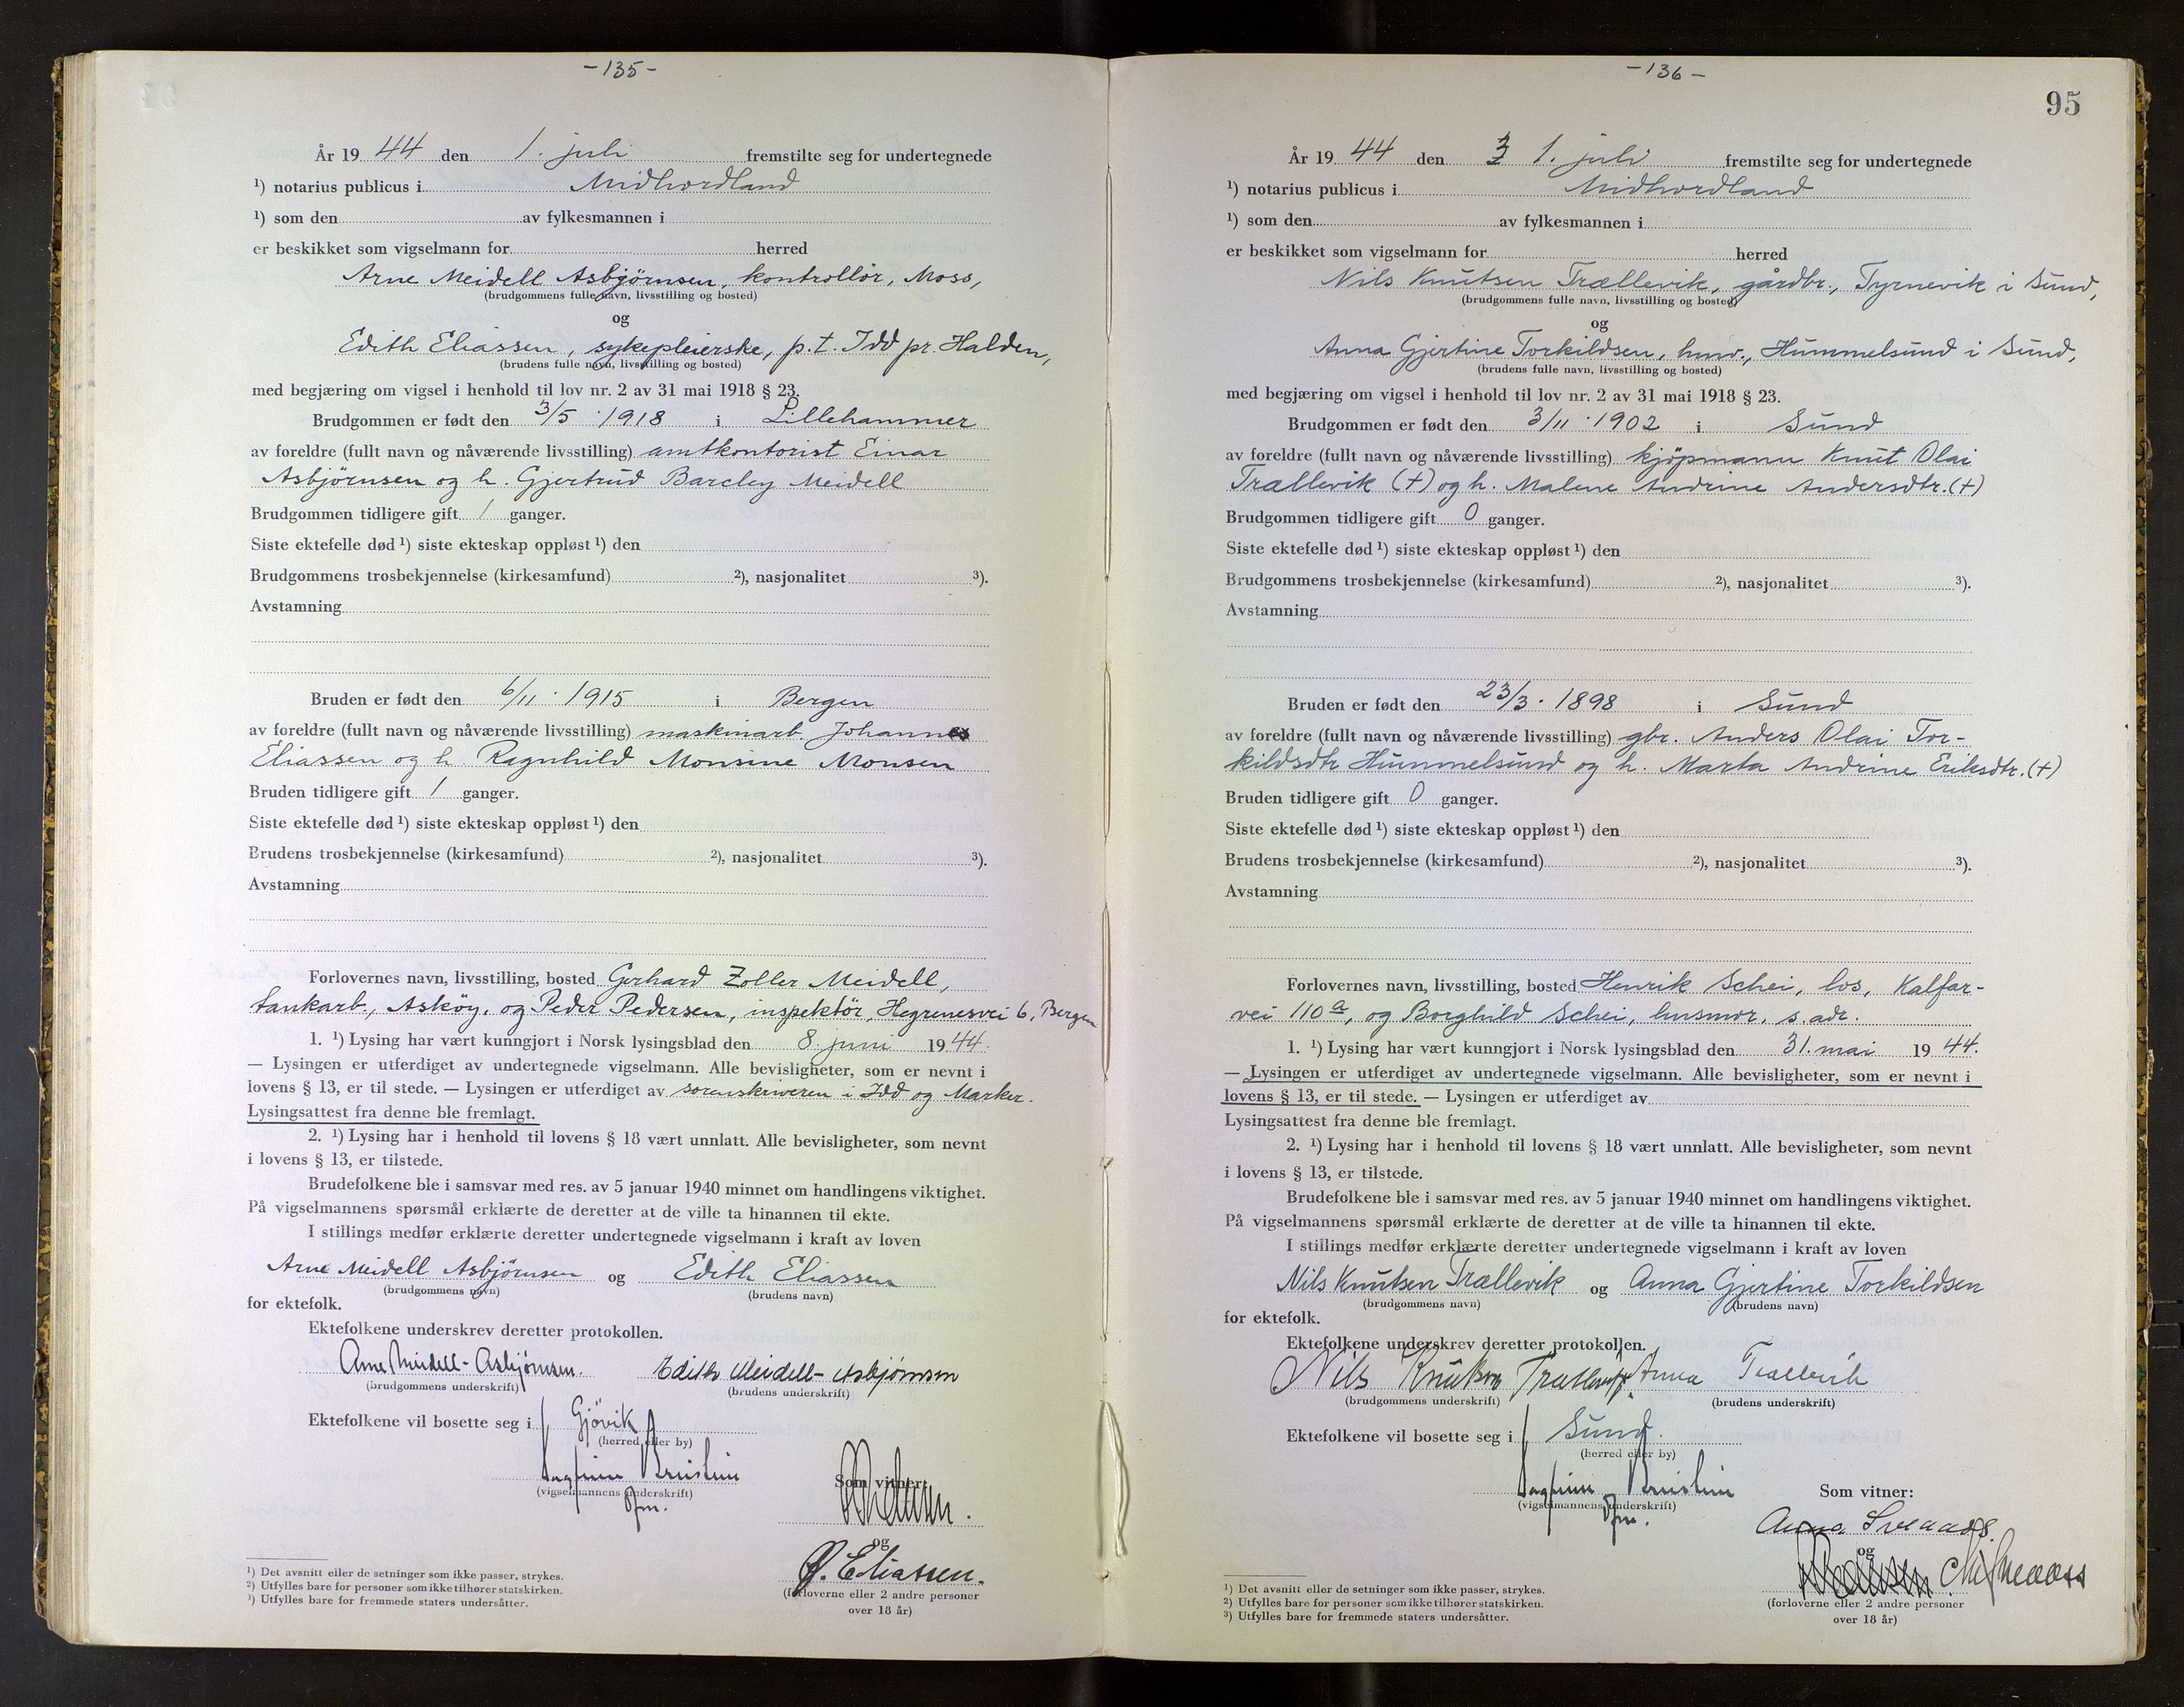 -135-
År 1944 den 1. juli fremstilte seg for undertegnede
¹) notarius publicus i Midhordland
¹) som den av fylkesmannen i
er beskikket som vigselmann for herred
Arne Meidell Asbjørnsen, kontrollör, Moss,
(brudgommens fulle navn, livsstilling og bosted)
og
Edith Eliassen, sykepleierske, p.t. Idd pr. Halden,
(brudens fulle navn, livsstilling og bosted)
med begjæring om vigsel i henhold til lov nr. 2 av 31 mai 1918 § 23.
Brudgommen er født den 3/5 . 1918 i Lillehammer
av foreldre (fullt navn og nåværende livsstilling) amtkontorist Einar
Asbjörnsen og h. Gjertrud Barcley Meidell
Brudgommen tidligere gift 1 ganger.
Siste ektefelle død ¹) siste ekteskap oppløst ¹) den
Brudgommens trosbekjennelse (kirkesamfund) ²), nasjonalitet ³).
Avstamning
Bruden er født den 6/11 . 1915 i Bergen
av foreldre (fullt navn og nåværende livsstilling) maskinarb. Johannes
Eliassen og h. Ragnhild Monsine Monsen
Bruden tidligere gift 1 ganger.
Siste ektefelle død ¹) siste ekteskap oppløst ¹) den
Brudens trosbekjennelse (kirkesamfund) ²), nasjonalitet ³).
Avstamning
Forlovernes navn, livsstilling, bosted Gerhard Zoller Meidell,
tankarb., Asköy, og Peder Pedersen, inspektör, Hegrenesvei 6, Bergen
1. ¹) Lysing har vært kunngjort i Norsk lysingsblad den 8. juni 1944.
— Lysingen er utferdiget av undertegnede vigselmann. Alle bevisligheter, som er nevnt i
lovens § 13, er til stede. — Lysingen er utferdiget av sorenskriveren i Idd og Marker.
Lysingsattest fra denne ble fremlagt.
2. ¹) Lysing har i henhold til lovens § 18 vært unnlatt. Alle bevisligheter, som nevnt
i lovens § 13, er tilstede.
Brudefolkene ble i samsvar med res. av 5 januar 1940 minnet om handlingens viktighet.
På vigselmannens spørsmål erklærte de deretter at de ville ta hinannen til ekte.
I stillings medfør erklærte deretter undertegnede vigselmann i kraft av loven
Arne Meidell Asbjörnsen og Edith Eliassen
(brudgommens navn) (brudens navn)
for ektefolk.
Ektefolkene underskrev deretter protokollen.
Arne Meidell-Asbjörnsen. Edith Meidell-Asbjörnsen
(brudgommens underskrift) (brudens underskrift)
Ektefolkene vil bosette seg i Gjövik
(herred eller by)
(vigselmannens underskrift)
Som vitner:
og
Eliassen.
(forloverne eller 2 andre personer
over 18 år)
¹) Det avsnitt eller de setninger som ikke passer, strykes.
²) Utfylles bare for personer som ikke tilhører statskirken.
³) Utfylles bare for fremmede staters undersåtter.
-136-
95
År 1944 den 1. juli fremstilte seg for undertegnede
¹) notarius publicus i Midhordland
¹) som den av fylkesmannen i
er beskikket som vigselmann for herred
Nils Knutsen Trællevik, gårdbr., Tyrnevik i Sund,
(brudgommens fulle navn, livsstilling og bosted)
og
Anna Gjertine Torkildsen, hmv., Hummelsund i Sund,
(brudens fulle navn, livsstilling og bosted)
med begjæring om vigsel i henhold til lov nr. 2 av 31 mai 1918 § 23.
Brudgommen er født den 3/11 . 1902 i Sund
av foreldre (fullt navn og nåværende livsstilling) kjöpmann Knut Olai
Trællevik (+) og h. Malene Andrine Andersdtr. (+)
Brudgommen tidligere gift 0 ganger.
Siste ektefelle død ¹) siste ekteskap oppløst ¹) den
Brudgommens trosbekjennelse (kirkesamfund) ²), nasjonalitet ³).
Avstamning
Bruden er født den 23/3 . 1898 i Sund
av foreldre (fullt navn og nåværende livsstilling) gbr. Anders Olai Tor-
kildsdtr Hummelsund og h. Marta Andrine Eriksdtr. (+)
Bruden tidligere gift 0 ganger.
Siste ektefelle død ¹) siste ekteskap oppløst ¹) den
Brudens trosbekjennelse (kirkesamfund) ²), nasjonalitet ³).
Avstamning
Forlovernes navn, livsstilling, bosted Henrik Schei, los, Kalfar-
vei 110 a, og Borghild Schei, husmor, s. adr.
1. ¹) Lysing har vært kunngjort i Norsk lysingsblad den 31. mai 1944.
— Lysingen er utferdiget av undertegnede vigselmann. Alle bevisligheter, som er nevnt i
lovens § 13, er til stede. — Lysingen er utferdiget av
Lysingsattest fra denne ble fremlagt.
2. ¹) Lysing har i henhold til lovens § 18 vært unnlatt. Alle bevisligheter, som nevnt
i lovens § 13, er tilstede.
Brudefolkene ble i samsvar med res. av 5 januar 1940 minnet om handlingens viktighet.
På vigselmannens spørsmål erklærte de deretter at de ville ta hinannen til ekte.
I stillings medfør erklærte deretter undertegnede vigselmann i kraft av loven
Nils Knutsen Trællevik og Anna Gjertine Torkildsen
(brudgommens navn) (brudens navn)
for ektefolk.
Ektefolkene underskrev deretter protokollen.
Nils Knutsen Trællevik Anna Trællevik
(brudgommens underskrift) (brudens underskrift)
Ektefolkene vil bosette seg i Sund.
(herred eller by)
(vigselmannens underskrift)
Som vitner:
Anna
og
(forloverne eller 2 andre personer
over 18 år)
¹) Det avsnitt eller de setninger som ikke passer, strykes.
²) Utfylles bare for personer som ikke tilhører statskirken.
³) Utfylles bare for fremmede staters undersåtter.